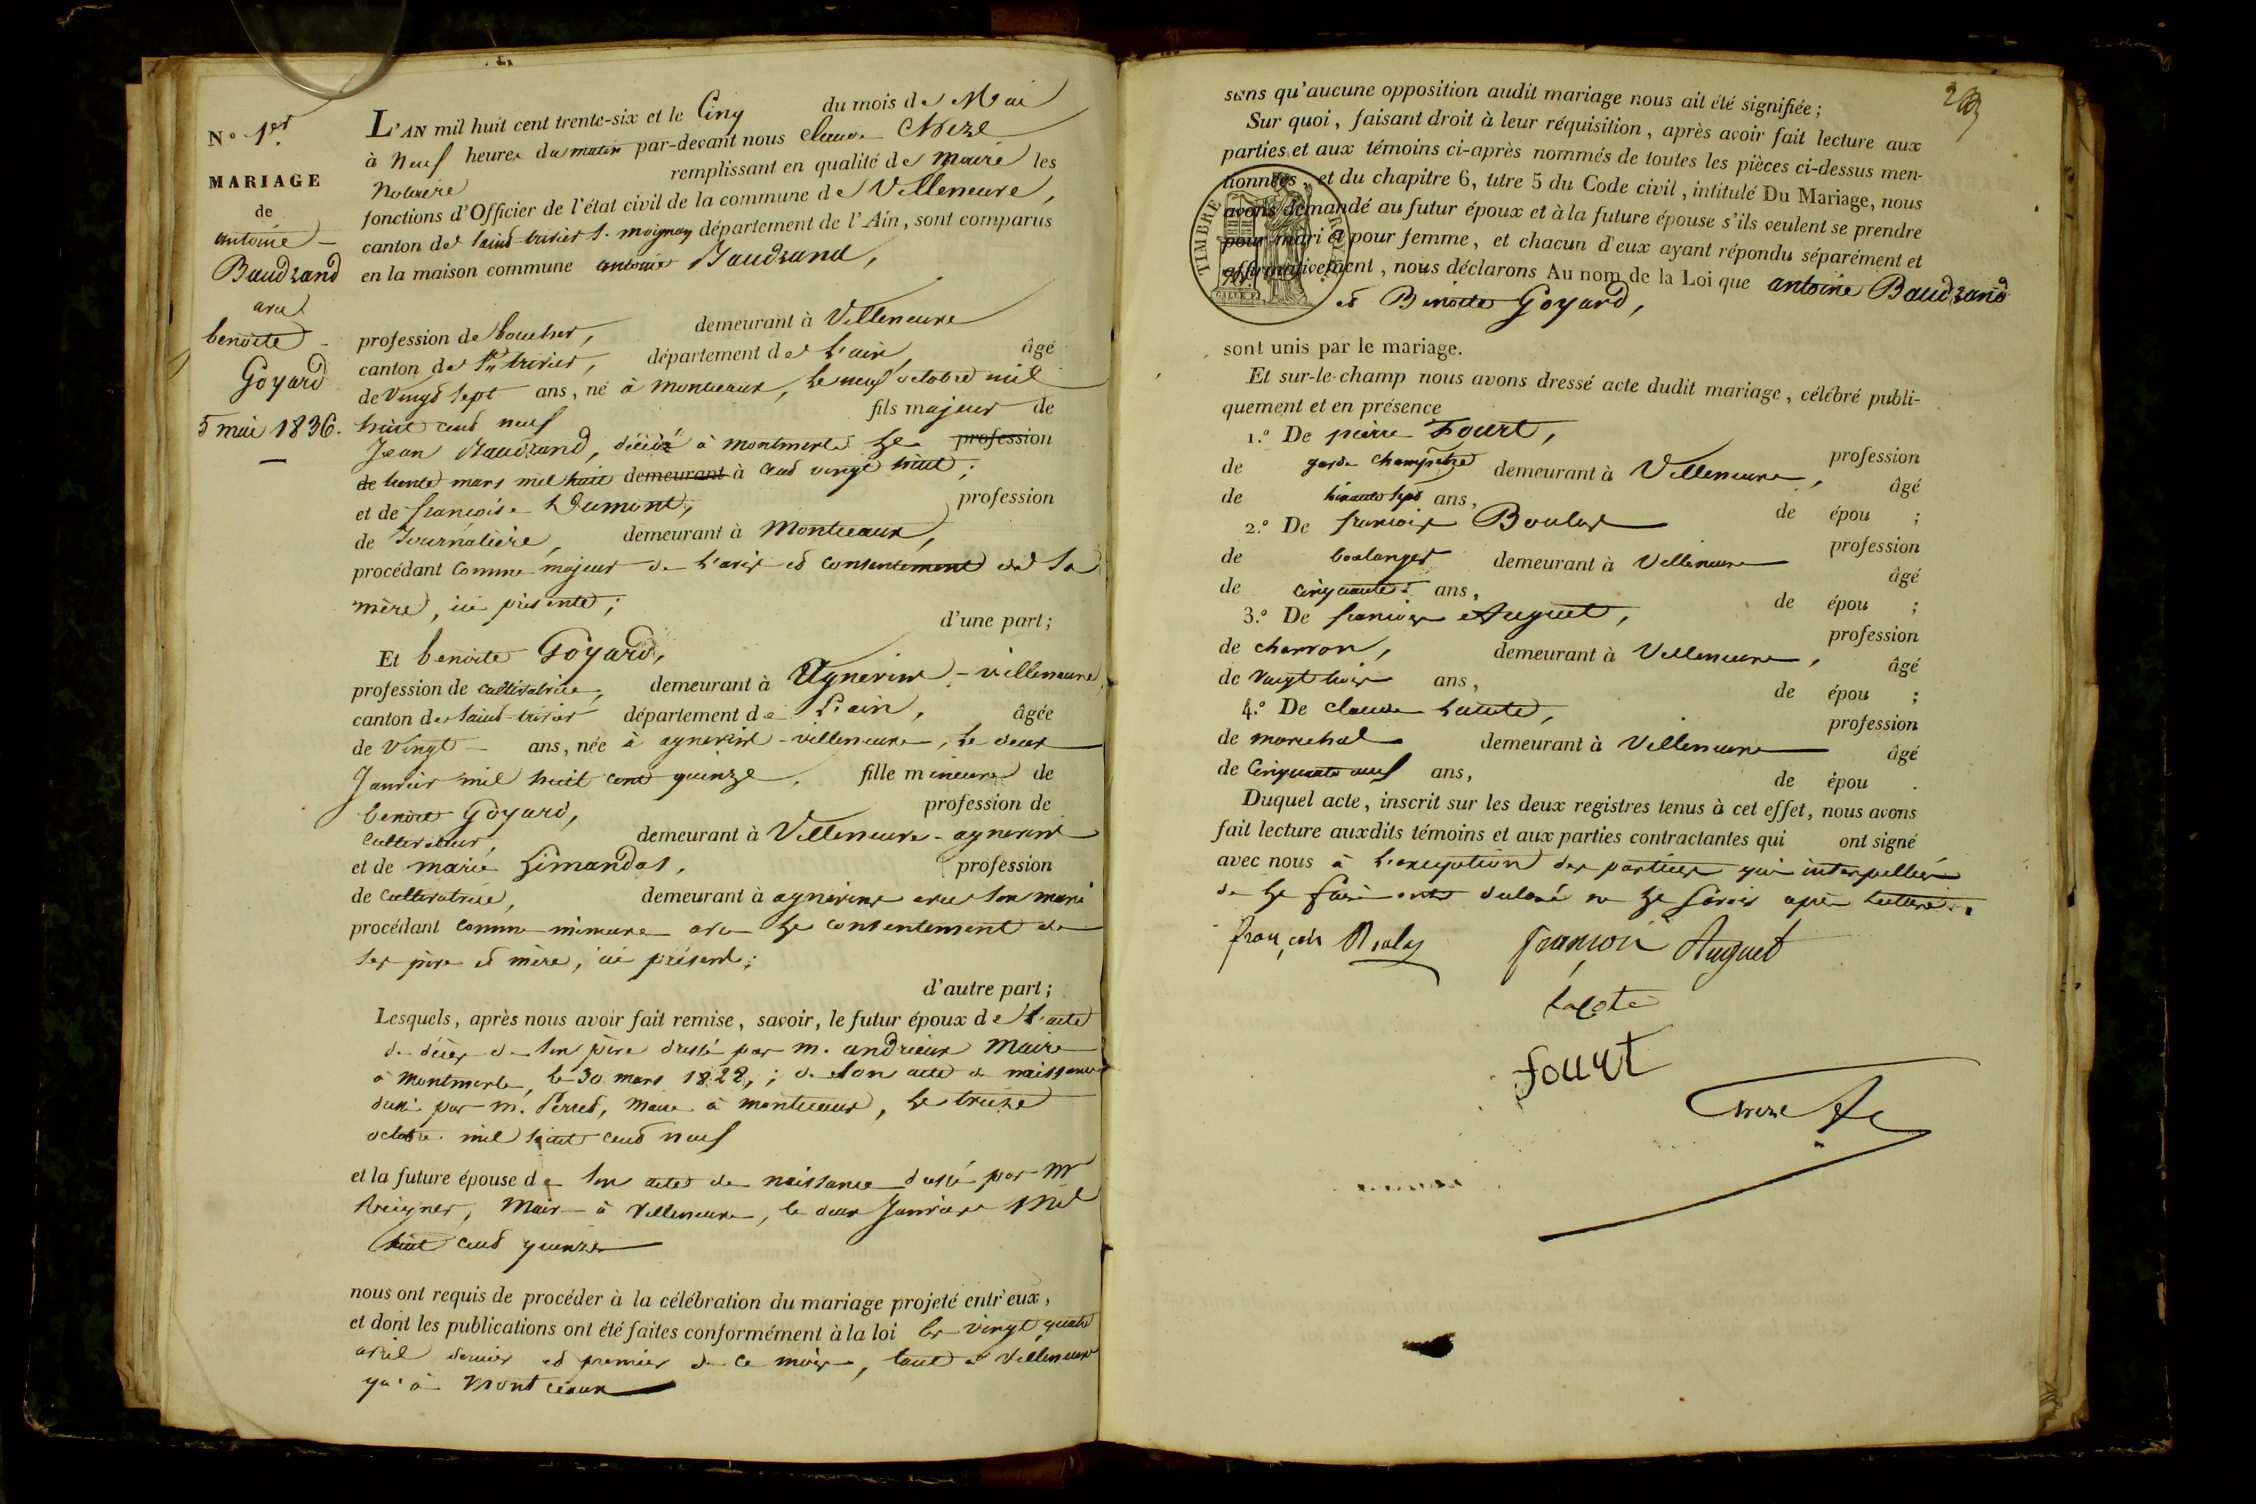 N.° 1er
MARIAGE
de
antoine
Baudrand
avec
benoite
Goyard
5 mai 1836.
L'AN mil huit cent trente-six et le Cinq du mois de Mai
à Neuf heures du matin par-devant nous Claude
Notaire remplissant en qualité de Maire les
fonctions d'Officier de l'état civil de la commune de Villeneuve,
canton de Saint-trivier S. moignan département de l'Ain, sont comparus
en la maison commune antoine Baudrand,
profession de boucher, demeurant à Villeneuve
canton de St trivier, département de L'ain, âgé
de Vingt Sept ans, né à Montceaux, le neuf octobre mil
huit cent neuf fils majeur de
Jean Baudrand, décédé à Montmerle Le profession
de trente mars mil huit demeurant à cent vingt huit;
et de françoise Dumont, profession
de Journalière, demeurant à Montceaux,
procédant Comme majeur de L'avis et consentement de Sa
mère, ici présente;
d'une part;
Et benoite Goyard,
profession de cultivatrice, demeurant à Agnereins-villeneuve,
canton de Saint-trivier département de L'ain, âgée
de Vingt ans, née à agnereins-villeneuve, le deux
Janvier mil huit cent quinze, fille mineure de
benoit Goyard, profession de
Cultivateur, demeurant à Villeneuve-agnereins
et de marie Limandas, profession
de Cultivatrice, demeurant à agnereins avec Son mari
procédant Comme mineure avec Le Consentement de
Ses père et mère, ici présents;
d'autre part;
Lesquels, après nous avoir fait remise, savoir, le futur époux de L'acte
de décès de Son père dressé par m. andrieux Maire
à Montmerle, le 30 mars 1828,; de Son acte de naissance
dressé par m. Perret, Maire à Montceaux, Le treize
octobre mil huit cent neuf
et la future épouse de Son acte de naissance dressé par Mr
Maire à Villeneuve, le deux Janvier Mil
huit cent quinze
nous ont requis de procéder à la célébration du mariage projeté entr'eux,
et dont les publications ont été faites conformément à la loi les vingt quatre
avril dernier et premier de Ce mois, tant à Villeneuve
qu'à Montceaux
sans qu'aucune opposition audit mariage nous ait été signifiée;
Sur quoi, faisant droit à leur réquisition, après avoir fait lecture aux
parties et aux témoins ci-après nommés de toutes les pièces ci-dessus men-
tionnées, et du chapitre 6, titre 5 du Code civil, intitulé Du Mariage, nous
avons demandé au futur époux et à la future épouse s'ils veulent se prendre
pour mari et pour femme, et chacun d'eux ayant répondu séparément et
affirmativement, nous déclarons Au nom de la Loi que antoine Baudrand
et Benoite Goyard,
TIMBRE ROYAL
sont unis par le mariage.
Et sur-le-champ nous avons dressé acte dudit mariage, célébré publi-
quement et en présence
1.° De pierre Fourt, profession
de garde champêtre demeurant à Villeneuve, âgé
de Sept ans, de épou ;
2.° De françois Boulay profession
de boulanger demeurant à Villeneuve âgé
de Cinquante ans, de épou ;
3.° De françois Auguet, profession
de charron, demeurant à Villeneuve, âgé
de Vingt trois ans, de épou ;
4.° De Claude profession
de marechal demeurant à Villeneuve âgé
de Cinquante neuf ans, de épou .
Duquel acte, inscrit sur les deux registres tenus à cet effet, nous avons
fait lecture auxdits témoins et aux parties contractantes qui ont signé
avec nous à L'exception des parties qui interpellées
de Le faire ont déclaré ne Le Savoir après Lecture.
françois
françois Auguet
fourt